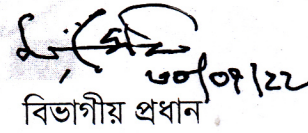 ৩০/০৭/২২
বিভাগীয় প্রধান